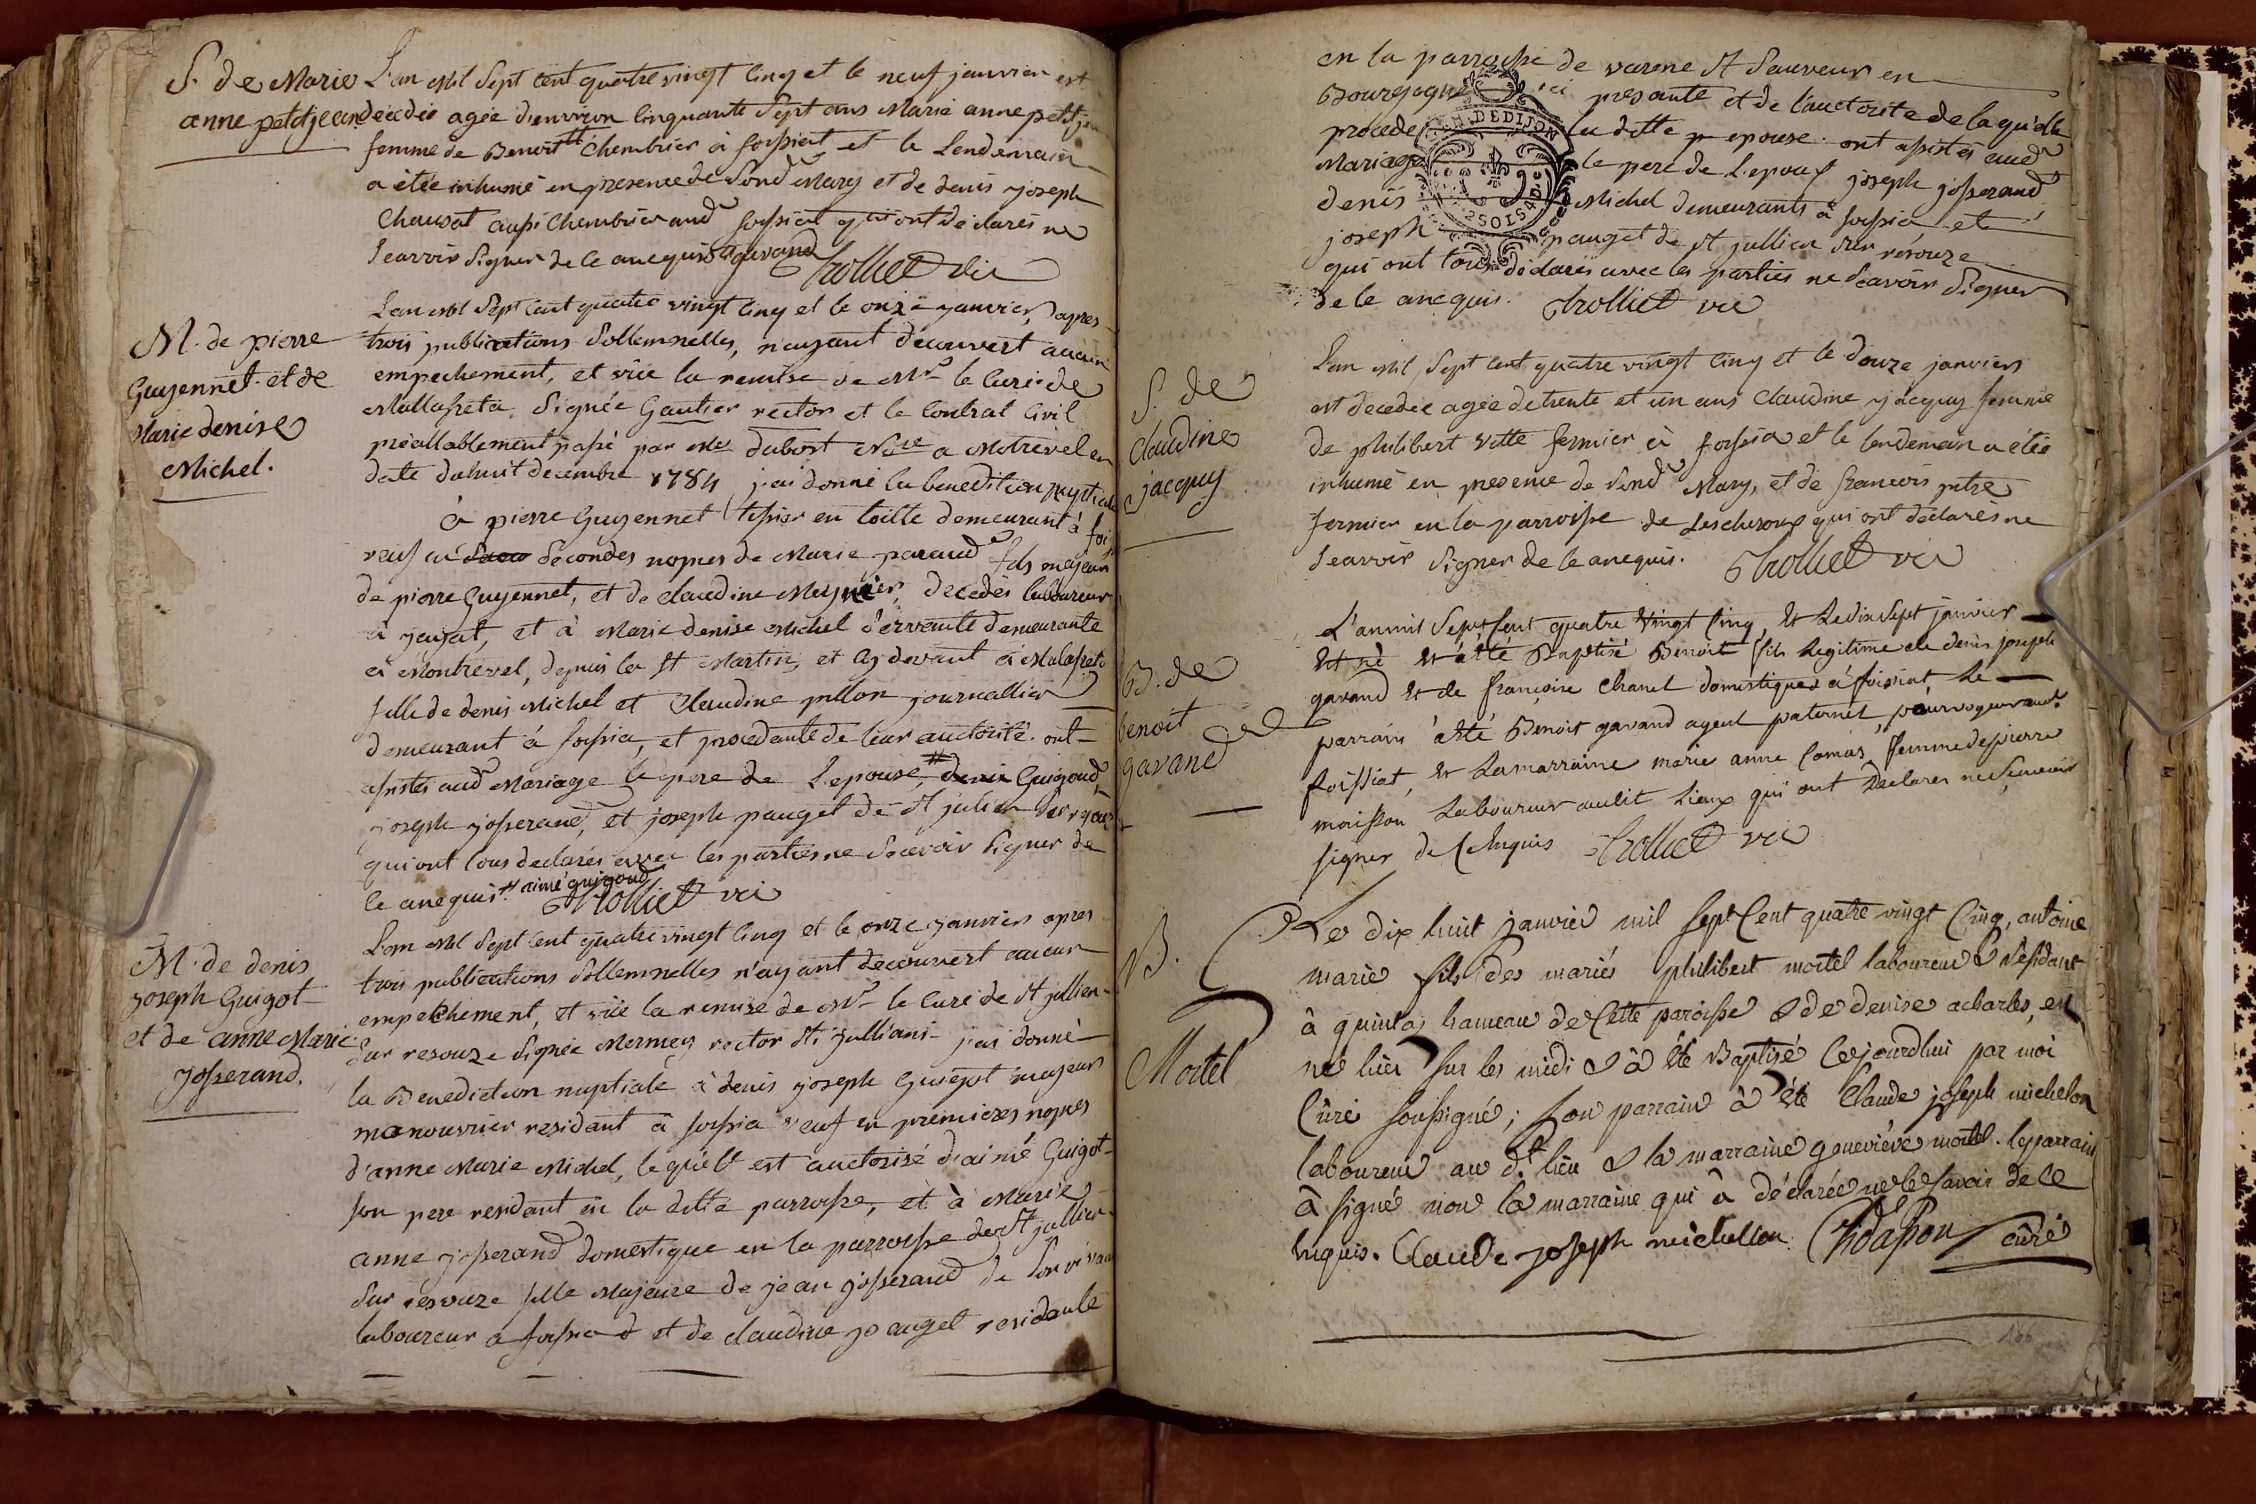 S. de Marie
anne petitjean
L'an mil Sept cent quatre vingt cinq et le neuf janvier est
decedée agée d'environ cinquante Sept ans Marie anne petitjean
femme de Benoit Chambrier à foissiat et le Lendemain
a étée inhumé en presence de Sond Mary et de denis joseph
Chanel aussi Chambrier aud foissiat qui ont déclarés ne
Scavoir Signer de ce enequis
Trolliet vic
M. de pierre
Guyennet et de
Marie denise
Michel.
L'an mil Sept cent quatre vingt cinq et le onze janvier, apres
trois publications Sollemnelles, n'ayant decouvert aucun
empechement, et vüe la remise de Mr le Curé de
Mallafreta, Signée Gautier rector et le Contrat Civil
préallablement passé par Me dubost Nre a Motrevel en
date du huit decembre 1784 j'ai donné la benediction nuptiale
à pierre Guyennet tissier en toille demeurant à
veuf en secondes nopces de Marie paraud fils majeur
de pierre Guyennet, et de claudine Meynier, decedés laboureur
à jayat, et à Marie denise Michel Servante demeurante
à Montrevel, depuis la St Martin, et cy devant à Malafreta
fille de denis Michel et Claudine pillon journallier
demeurant à foissia, et procedante de leur auctorité. ont
assistés aud Mariage le pere de L'epouse, # Guigoud,
joseph josserand, et joseph pauget de St julien Sur
qui ont tous declarés avec les parties ne Scavoir Signer de
ce enequis. # aimé guigoud
Trolliet vic
M. de denis
joseph Guigot
et de anne Marie
josserand.
L'an mil Sept cent quatre vingt cinq et le onze janvier apres
trois publications Sollemnelles n'ayant decouvert aucun
empechement, et vüe la remise de Mr le Curé de St jullien
Sur resouze Signée Mermey rector Sti julliani j'ai donné
la Benediction nuptiale à denis joseph Guigot majeur
manouvrier residant à foissia veuf en premieres nopces
d'anne Marie Michel, lequel est auctorisé d'aimé Guigot
son pere residant en la ditte parroisse, et à Marie
anne josserand domestique en la parroisse de St jullien
Sur resouze fille Majeure de jean josserand de Son vivant
laboureur à foissiad et de claudine pauget residante
en la parroisse de varene St Sauveur en
Bourgogne ici presante et de l'auctorite de laquelle
procede la ditte epouse. ont assistés aud
Mariage le pere de L'epoux joseph josserand
denis Michel demeurants à foissia et
joseph pauget de St jullien Sur resouze
qui ont tous declarés avec les parties ne Scavoir Signer
de ce enequis. Trolliet vic
DE DIJON
S. de
Claudine
jacquy
L'an mil Sept cent quatre vingt cinq et le douze janvier
est decedée agée de trente et un ans Claudine jacquy femme
de philibert vitte fermier à foissia et le lendemain a étée
inhumé en presence de Sond Mary, et de francois
fermier en la parroisse de Lescheroux qui ont déclarés ne
Scavoir Signer de ce enequis. Trolliet vic
B. de
benoit
gavand
L'an mil Sept Cent quatre Vingt Cinq, Et Le dix Sept janvier
Est né Et a été Baptisé Benoit fils Legitime de denis joseph
gavand Et de françoise Chanel domestiques à foissiat, Le
parrain a été Benoit gavand ayeul paternel,
foissiat, Et La marraine marie anne Comas, femme de pierre
moisson Laboureur audit Lieux qui ont Declarer ne Scavoir
signer de Cenquis Trolliet vic
B.
Mortel
Le dix huit janvier mil sept Cent quatre vingt Cinq, antoine
marie fils des mariés philibert mortel laboureur & residant
à quintas hameau de Cette paroisse & de denise acharles, est
né hier sur les midi & à été Baptisé Cejourdhui par moi
Curé soussigné; son parrain à été Claude joseph michelon
laboureur au dt lieu & la marraine geneviéve mortel. le parrain
à signé non la marraine qui à déclarée ne le savoir de ce
enquis. Claude joseph michellon Chidasson curé
106